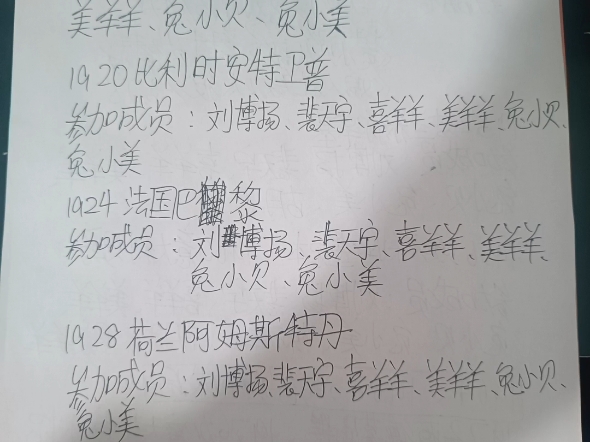 美羊羊、兔小贝、兔小美
1920比利时安特卫普
参加成员：刘博扬、裴天宇、喜羊羊、美羊羊、兔小贝、
兔小美
1924法国巴黎
参加成员：刘博扬、裴天宇、喜羊羊、美羊羊、
兔小贝、兔小美
1928荷兰阿姆斯特丹
参加成员：刘博扬、裴天宇、喜羊羊、美羊羊、兔小贝、
兔小美